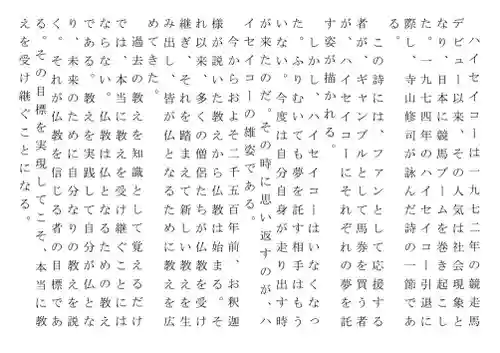 ハイセイコーは一九七二年の競走馬
デビュー以来、その人気は社会現象と
なり、日本に競馬ブームを巻き起こし
た。一九七四年のハイセイコー引退に
際し、寺山修司が詠んだ詩の一節であ
る。
この詩には、ファンとして応援する
者が、ギャンブルとして馬券を買う者
が、ハイセイコーにそれぞれの夢を託
す姿が描かれる。
しかし、ハイセイコーはいなくなっ
た。ふりむいても夢を託す相手はもう
いない。今度は自分自身が走り出す時
が来たのだ。その時に思い返すのが、ハ
イセイコーの雄姿である。
今からおよそ二千五百年前、お釈迦
様が説いた教えから仏教は始まる。そ
れ以来、多くの僧侶たちが仏教を受け
継ぎ、それを踏まえて新しい教えを生
み出し、皆が仏となるために教えを広
めてきた。
過去の教えを知識として覚えるだけ
では、本当に教えを受け継ぐことには
ならない。仏教は仏となるための教え
である。教えを実践して自分が仏とな
り、未来のために自分なりの教えを説
く。それが仏教を信じる者の目標であ
る。その目標を実現してこそ、本当に教
えを受け継ぐことになる。